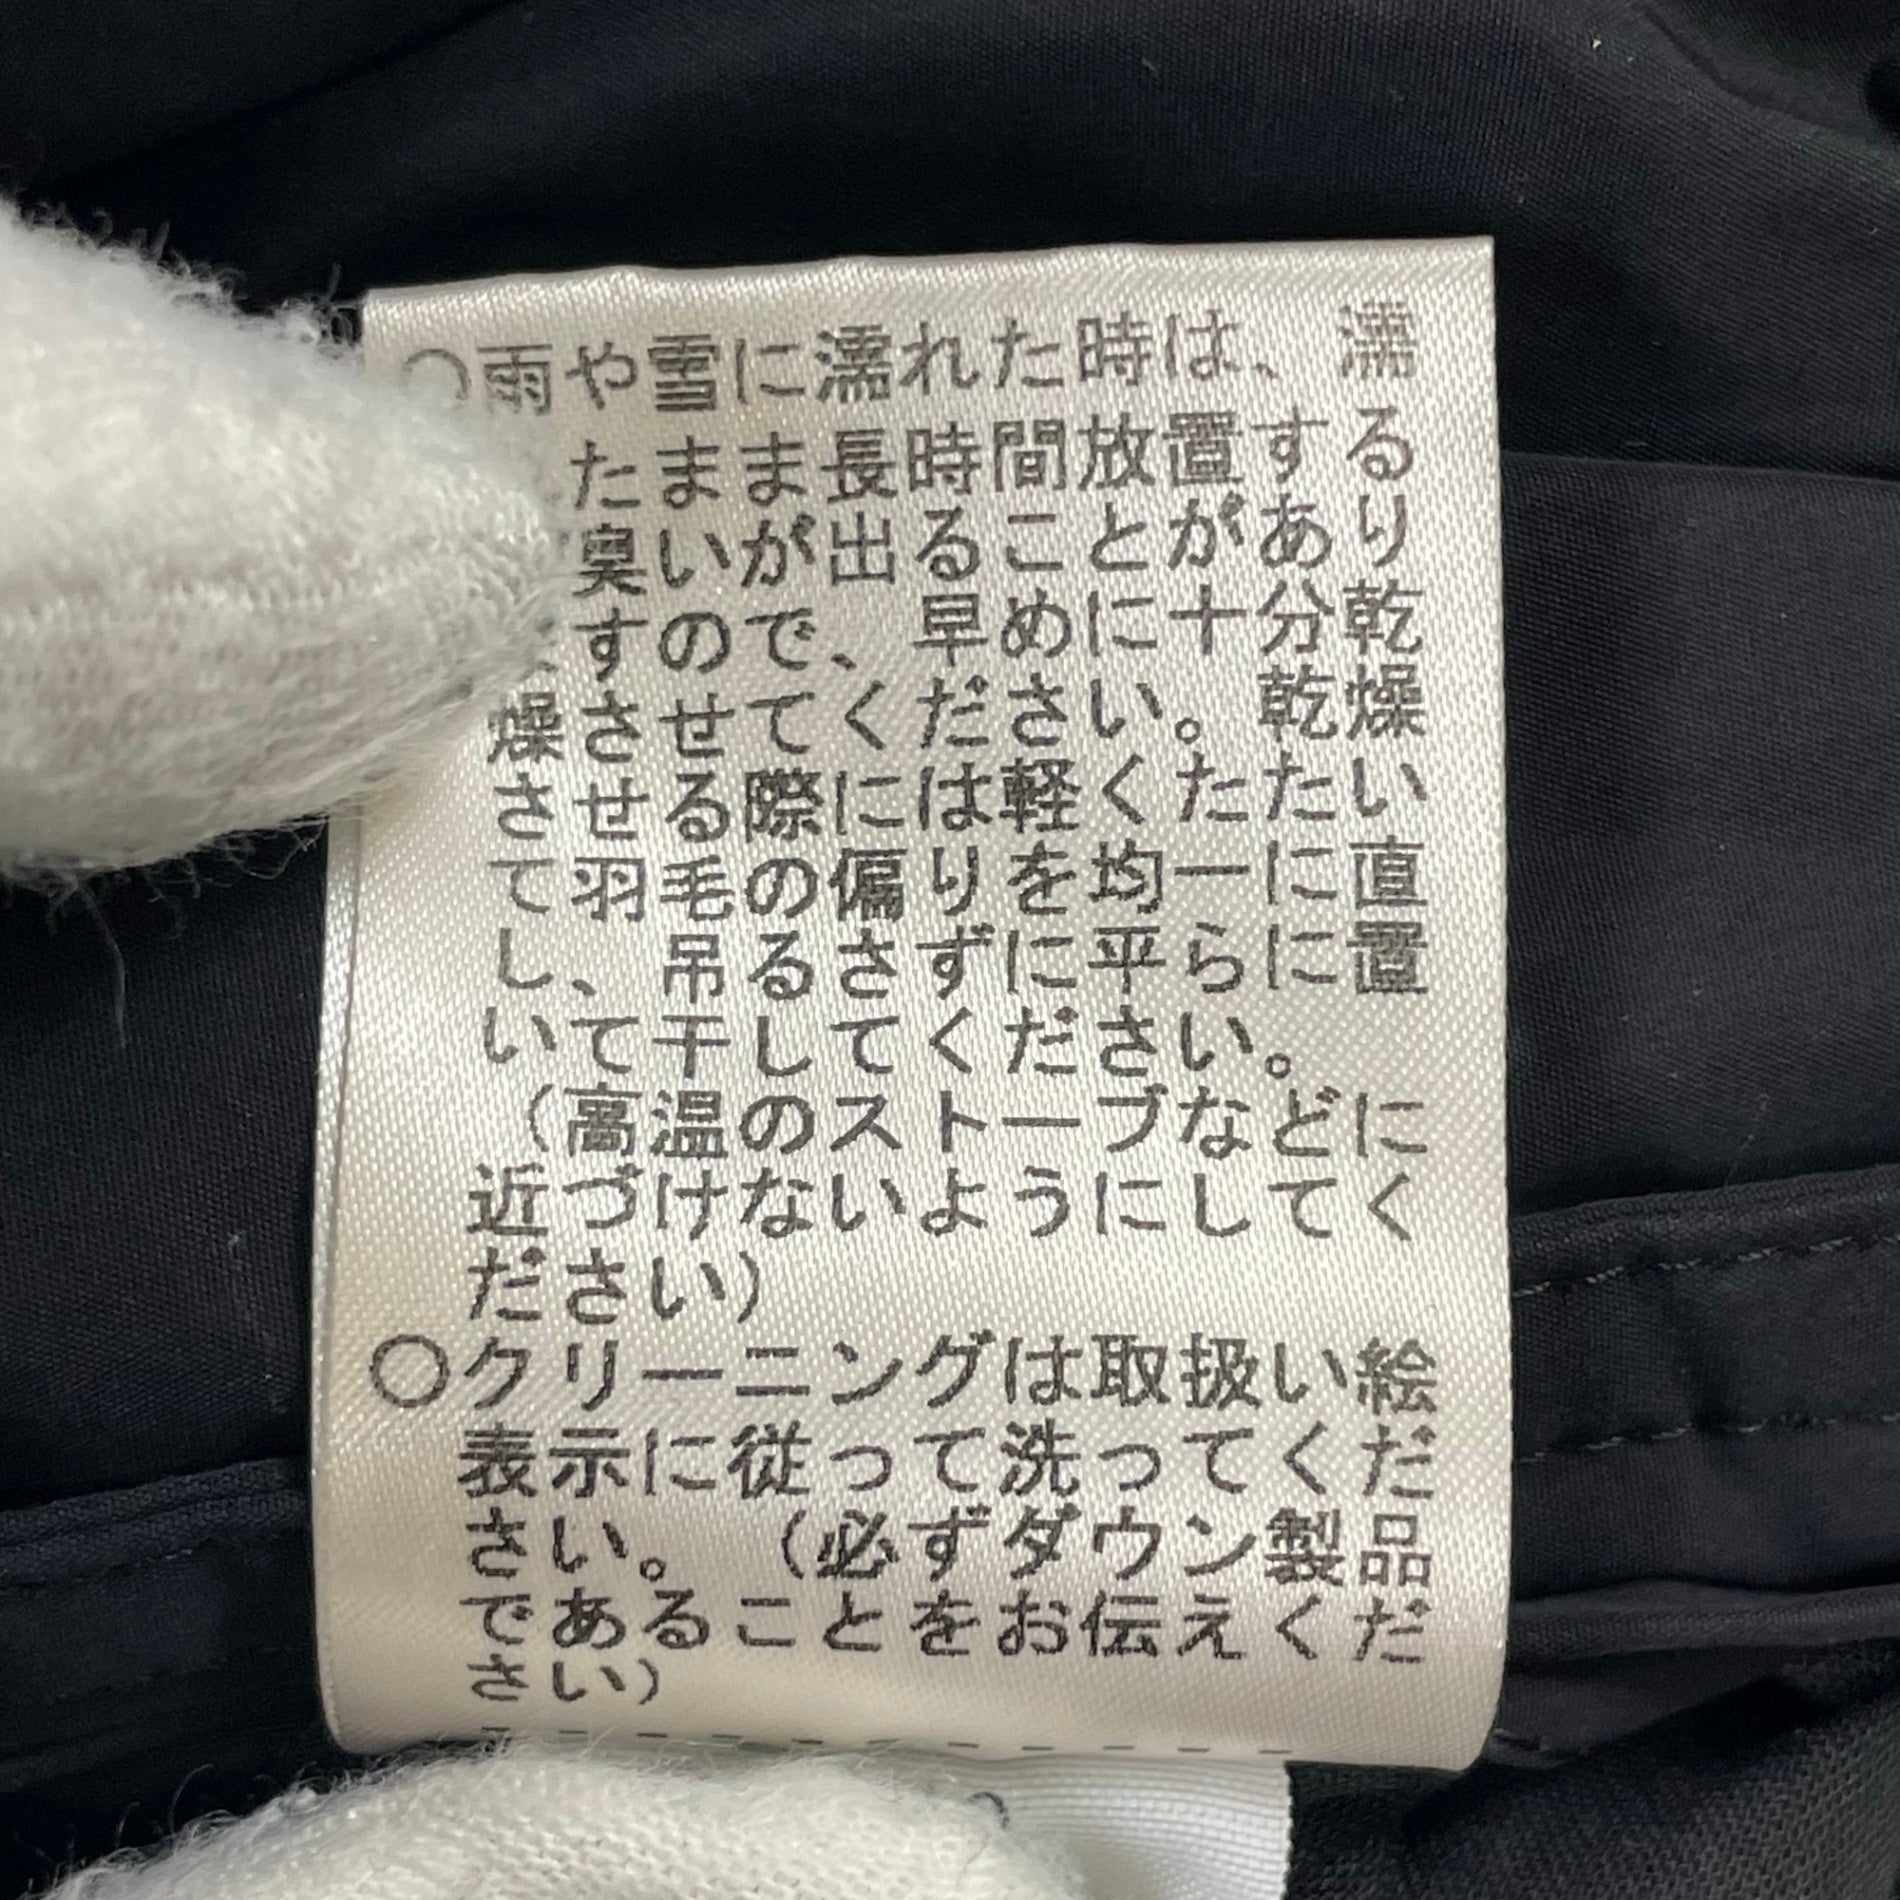 ○雨や雪に濡れた時は、濡
たまま長時間放置する
臭いが出ることがあり
すので、早めに十分乾
燥させてください。乾燥
させる際には軽くたたい
て羽毛の偏りを均一に直
し、吊るさずに平らに置
いて干してください。
（高温のストーブなどに
近づけないようにしてく
ださい）
○クリーニングは取扱い絵
表示に従って洗ってくだ
さい。（必ずダウン製品
であることをお伝えくだ
さい）